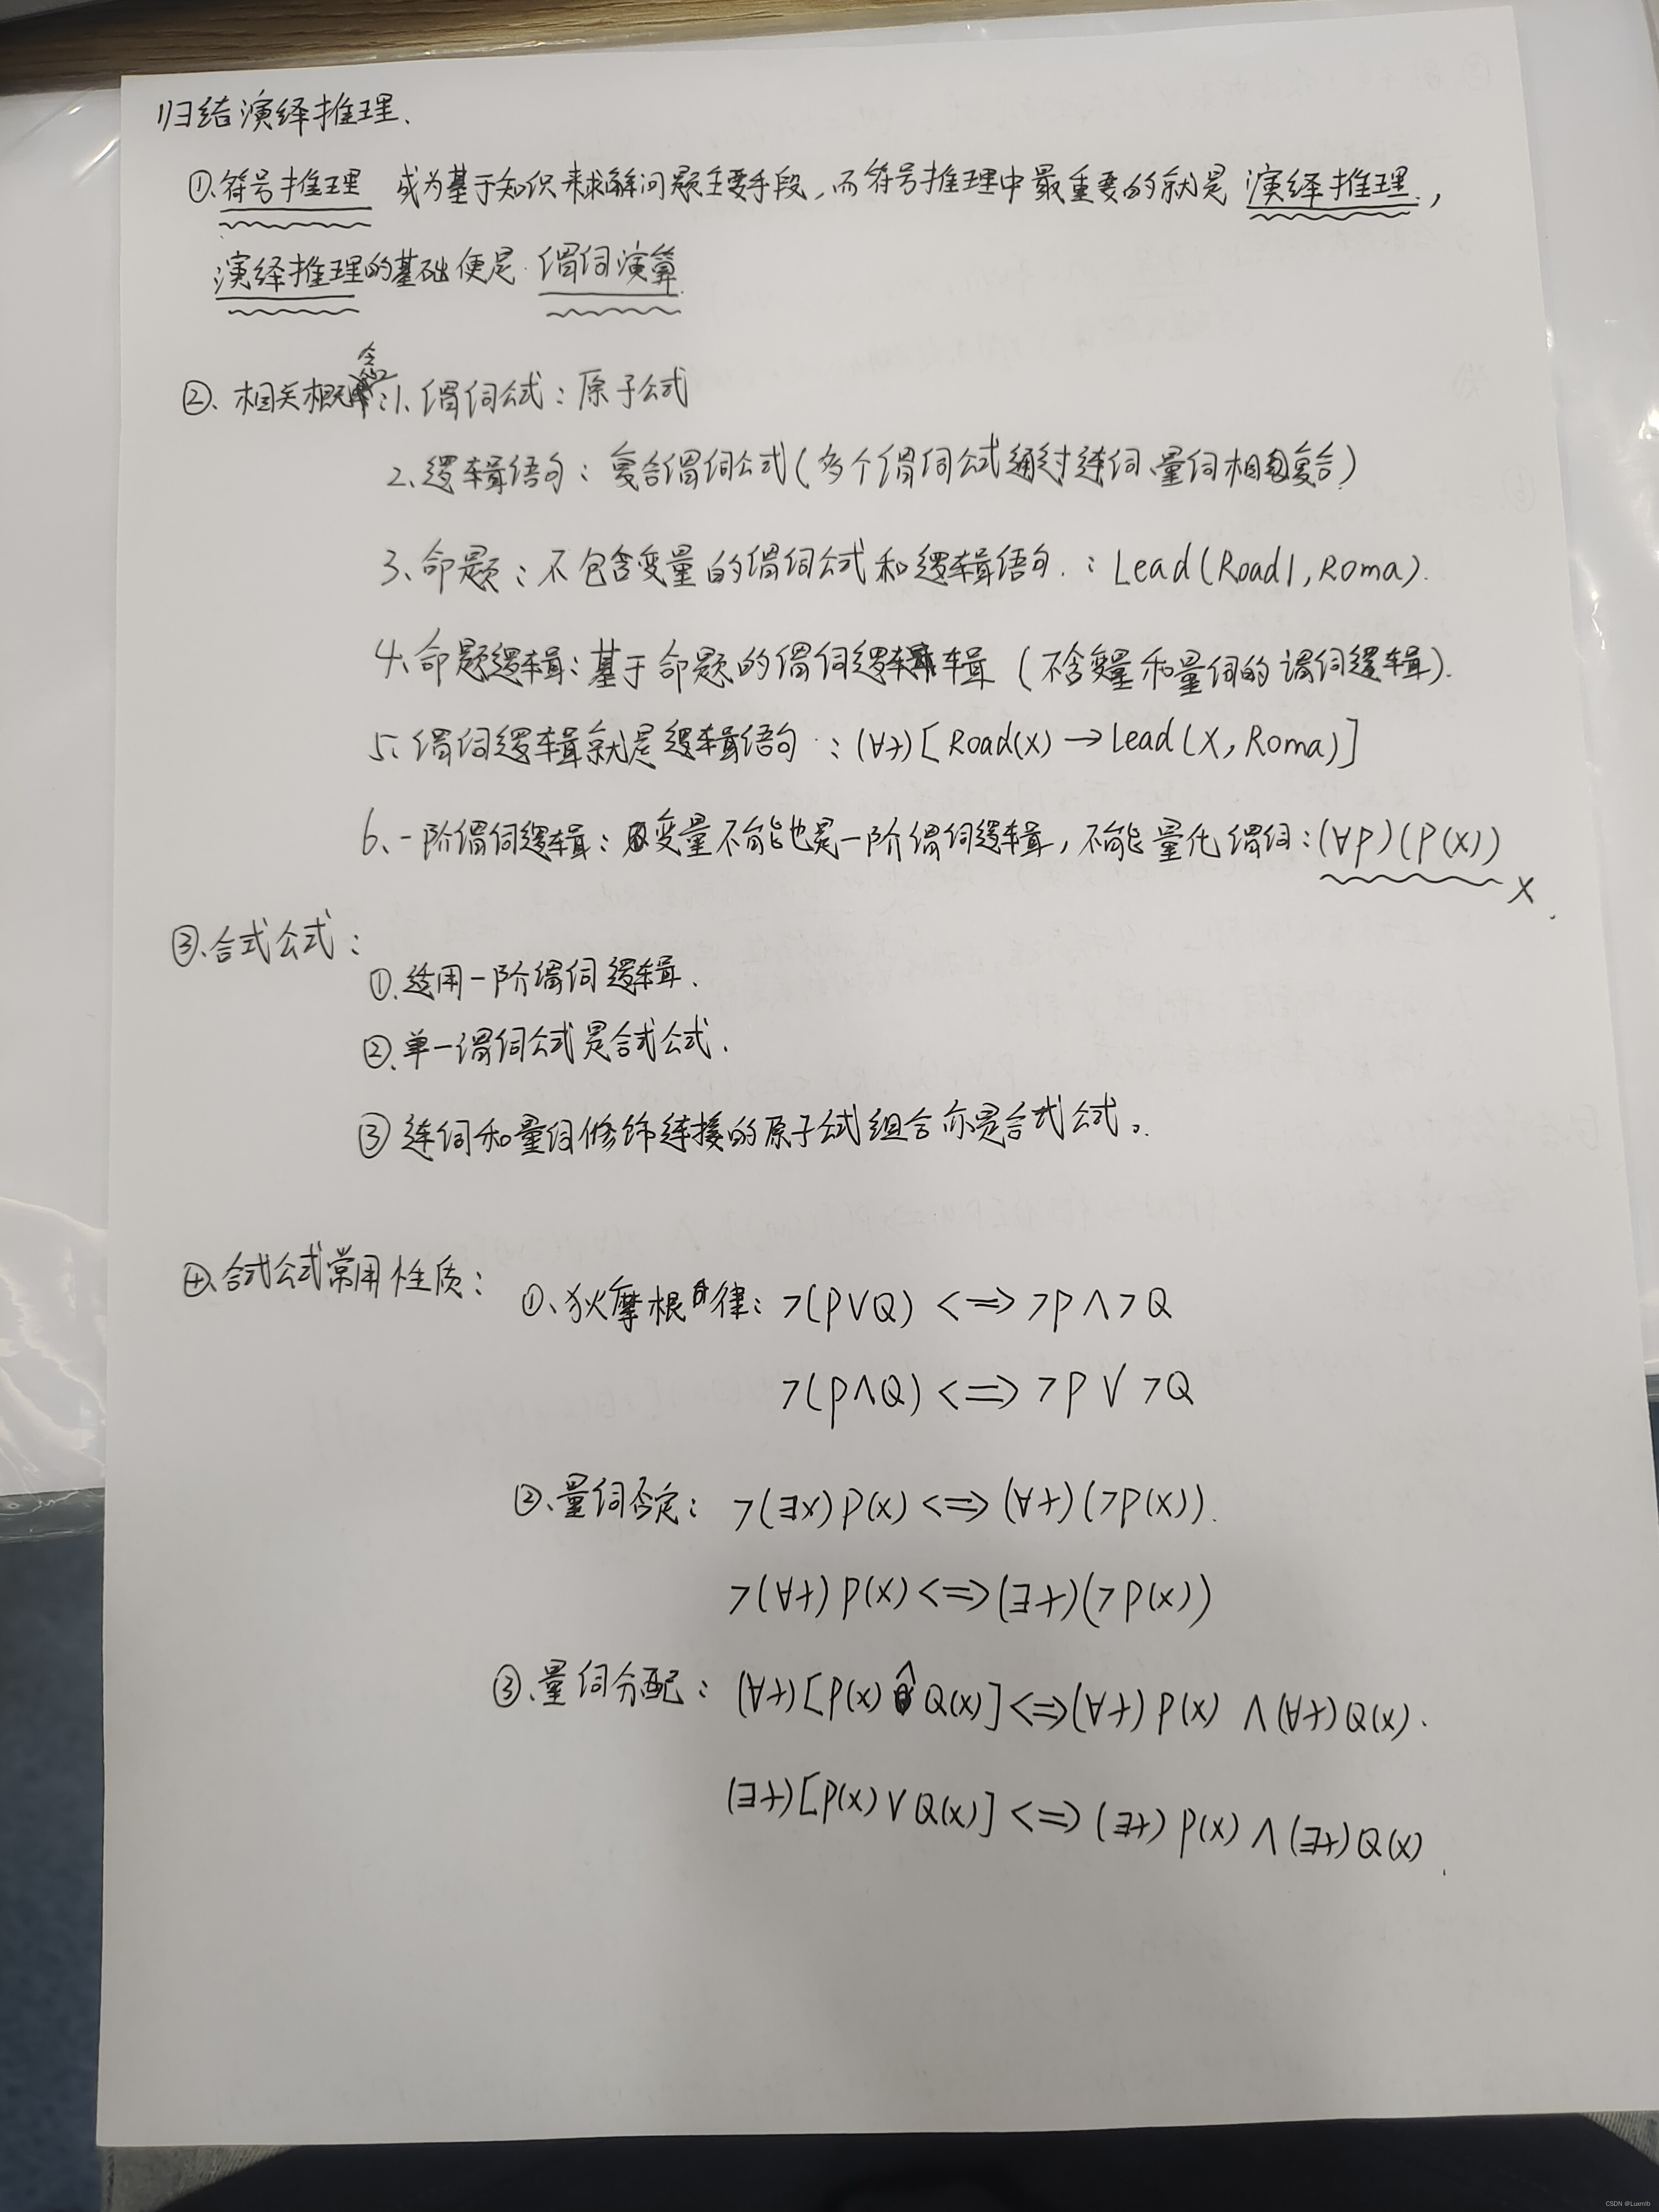 归结演绎推理、
①符号推理 成为基于知识来求解问题主要手段，而符号推理中最重要的就是 演绎推理，
演绎推理的基础便是 谓词演算
②、相关概念：1、谓词公式：原子公式
2、逻辑语句：复合谓词公式(多个谓词公式通过连词、量词相互复合)
3、命题：不包含变量的谓词公式和逻辑语句.：Lead(Road1, Roma).
4、命题逻辑：基于命题的谓词逻辑 (不含变量和量词的谓词逻辑).
5、谓词逻辑就是逻辑语句：(∀x)[Road(x)→Lead(X, Roma)]
6、一阶谓词逻辑：变量不能也是一阶谓词逻辑，不能量化谓词：(∀P)(P(X))
X
③、合式公式：
①、适用一阶谓词逻辑.
②、单一谓词公式是合式公式.
③ 连词和量词修饰连接的原子公式组合亦是合式公式。
④、合式公式常用性质：
①、狄摩根律：¬(P∨Q) <=> ¬P∧¬Q
¬(P∧Q) <=> ¬P∨¬Q
②、量词否定：¬(∃x)P(x) <=> (∀x)(¬P(x)).
¬(∀x)P(x) <=> (∃x)(¬P(x))
③、量词分配：(∀x)[P(x)∧Q(x)] <=> (∀x)P(x) ∧(∀x)Q(x).
(∃x)[P(x)∨Q(x)] <=> (∃x)P(x)∧(∃x)Q(x)
CSDN @Luxmlb